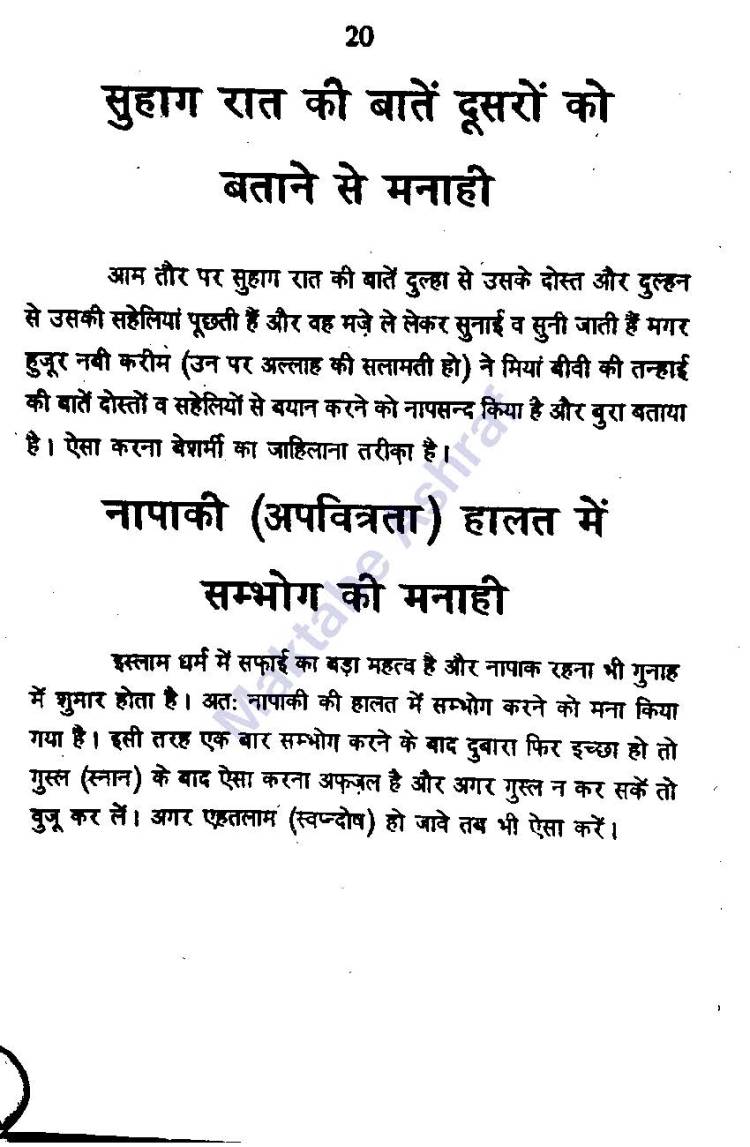 20
सुहाग रात की बातें दूसरों को
बताने से मनाही
आम तौर पर सुहाग रात की बातें दुल्हा से उसके दोस्त और दुल्हन
से उसकी सहेलियां पूछती हैं और वह मज़े ले लेकर सुनाई व सुनी जाती हैं मगर
हुजूर नबी करीम (उन पर अल्लाह की सलामती हो) ने मियां बीवी की तन्हाई
की बातें दोस्तों व सहेलियों से बयान करने को नापसन्द किया है और बुरा बताया
है। ऐसा करना बेशर्मी का जाहिलाना तरीक़ा है।
नापाकी (अपवित्रता) हालत में
सम्भोग की मनाही
इस्लाम धर्म में सफाई का बड़ा महत्व है और नापाक रहना भी गुनाह
में शुमार होता है। अतः नापाकी की हालत में सम्भोग करने को मना किया
गया है। इसी तरह एक बार सम्भोग करने के बाद दुबारा फिर इच्छा हो तो
गुस्ल (स्नान) के बाद ऐसा करना अफज़ल है और अगर गुस्ल न कर सकें तो
वुजू कर लें। अगर एहतलाम (स्वप्नदोष) हो जावे तब भी ऐसा करें।
Maktabe Ashraf